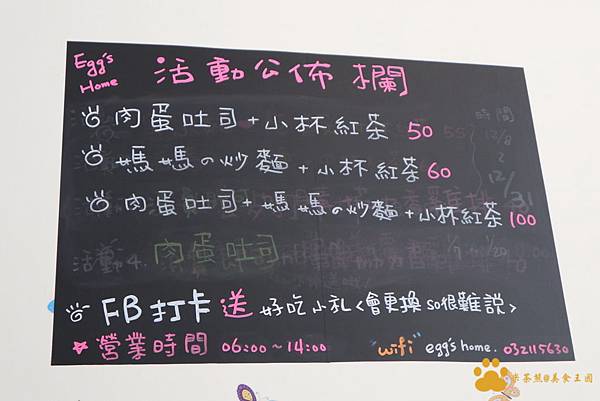 Egg's Home 活動公佈欄
肉蛋吐司+小杯紅茶 50
媽媽の炒麵+小杯紅茶 60
肉蛋吐司+媽媽の炒麵+小杯紅茶 100
時間
12/8
12/31
活動4.
肉蛋吐司
FB打卡送 好吃小礼<會更換so很難説>
營業時間 06:00~14:00 "wifi" egg's home. 032115630
米茶熊@美食王國